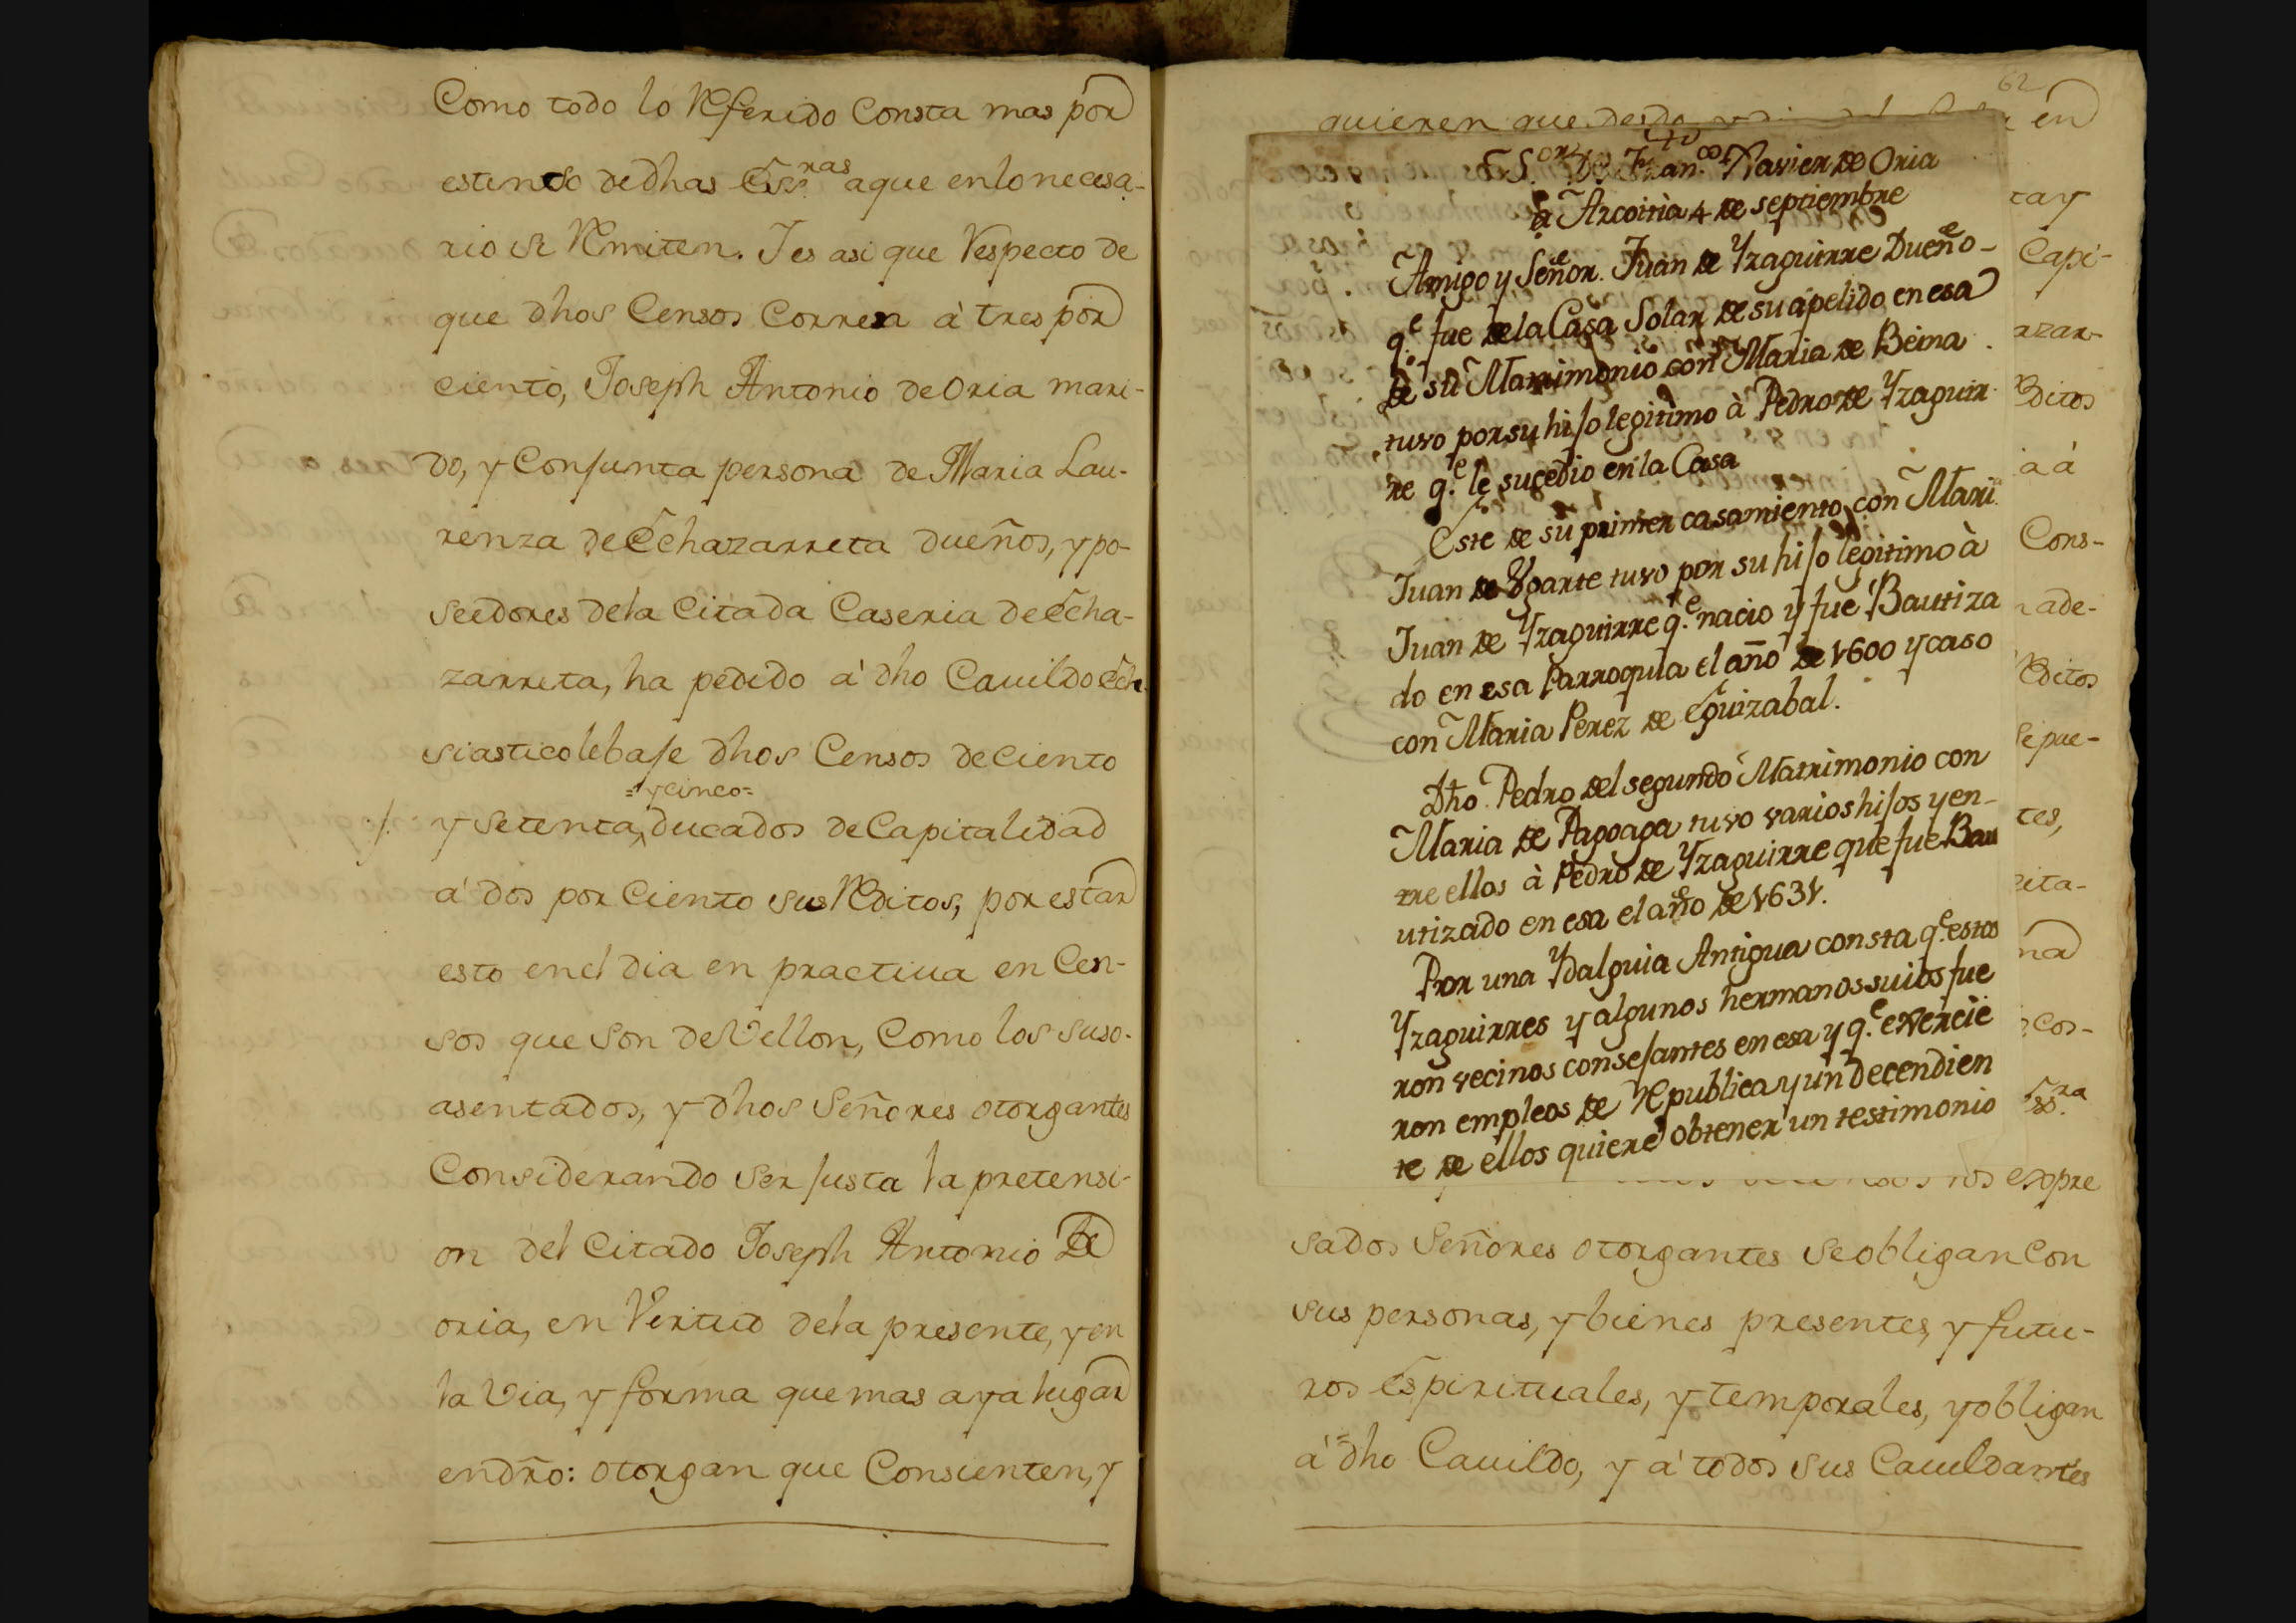 Como todo lo Referido Consta mas por
estenso de dhas Ess.ras aque enlo necesa-
rio se Remiten. Ies asi que Respecto de
que dhos Censos Corren à tres por
ciento, Joseph Antonio de Oria mari-
do, y Conjunta persona de Maria Lau-
renza de Echazarreta dueños, y po-
seedores dela Citada Caseria de Echa-
zarreta, ha pedido à dho Cauildo Ecle
siastico le baje dhos Censos de Ciento
=ycinco=
y setenta, ducados de Capitalidad
à dos por Ciento sus Reditos, por estar
esto enel dia en practiua en Cen-
sos que son de Vellon, Como los suso-
asentados, y dhos Señores otorgantes
Considerando ser justa la pretensi-
on del Citado Joseph Antonio de
oria, en Vertud dela presente, y en
la Via, y forma que mas aya lugar
endro: otorgan que Consienten, y
62
quieren que desde en
S.or D. Fran.co Xavier de Oria
à Azcoitia 4 de septiembre
Amigo y Señor. Juan de Yzaguirre Dueño-
q.e fue dela Casa Solar de su apelido en esa
de su Matrimonio con Maria de Beina
tuvo por su hijo legitimo à Pedro de Yzaguir
re q.e le sucedio en la Casa
Este de su primer casamiento con Mari
Juan de Ugarte tuvo por su hijo legitimo à
Juan de Yzaguirre q.e nacio y fue Bautiza
do en esa Parroquia el año de 1600 y caso
con Maria Perez de Eguizabal.
Dho Pedro del segundo Matrimonio con
Maria de Pagoaga tuvo varios hijos y en-
tre ellos à Pedro de Yzaguirre que fue Bau
utizado en esa el año de 1631.
Por una Ydalguia Antigua consta q.e estos
Yzaguirres y algunos hermanos suios fue
ron vecinos consejantes en esa y q.e exercie
ron empleos de Republica y un decendien
te de ellos quiere obtener un testimonio
tay
Capi-
azar-
Reditos
a à
Cons-
ade-
Reditos
se pue-
tes,
cita-
cos-
expre
sados Señores otorgantes se obligan Con
sus personas, y bienes presentes, y futu-
ros Espirituales, y temporales, y obligan
à dho Cauildo, y à todos sus Cauildantes